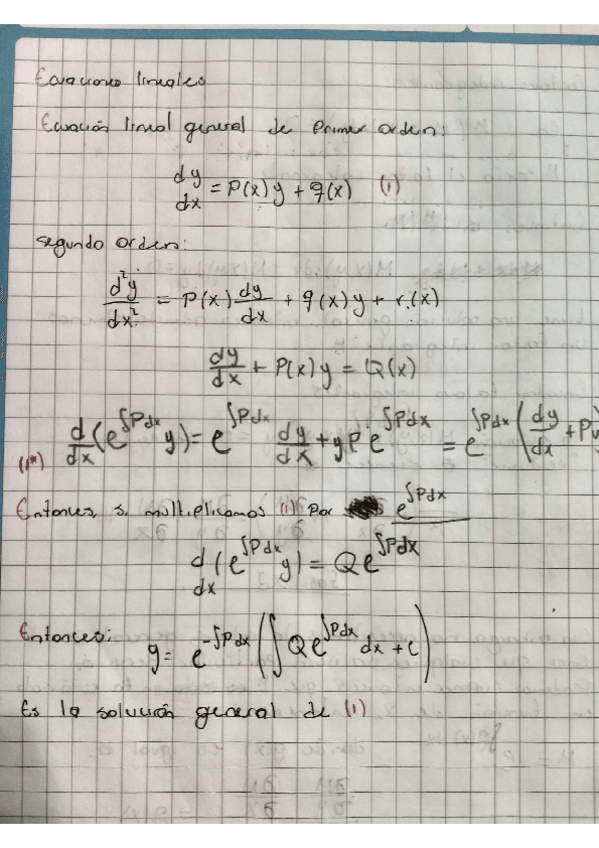 Ecuaciones lineales
Ecuación lineal general de Primer orden:
dy/dx = P(x)y + q(x) (1)
segundo orden:
d²y/dx² = P(x) dy/dx + q(x)y + r(x)
dy/dx + P(x)y = Q(x)
(1*) d/dx (e^∫Pdx y) = e^∫Pdx dy/dx + yP e^∫Pdx = e^∫Pdx (dy/dx + Py
Entonces, si multiplicamos (1) Por e^∫Pdx
d/dx (e^∫Pdx y) = Q e^∫Pdx
Entonces:
y = e^-∫Pdx (∫ Q e^∫Pdx dx + c)
Es la solución general de (1)